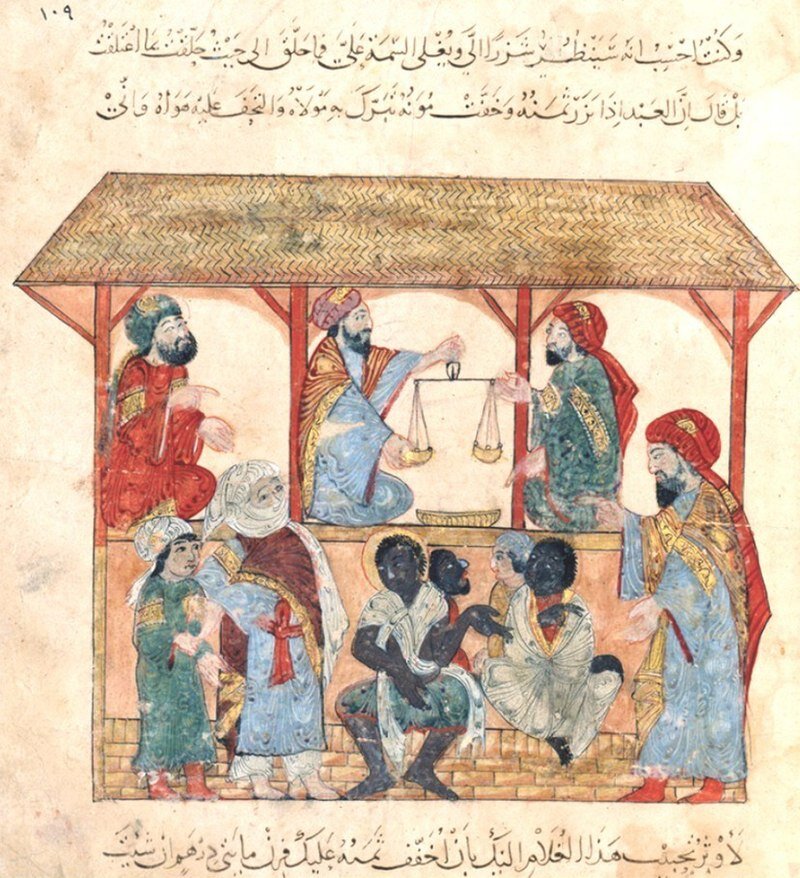 ١٠٩
وكنت احسب انه سينظر شزرا الي ويغلي السيمة علي فما حلق الى حيث حلقت عما اعتلقت
بل قال ان العبد اذا نزر ثمنه وخفت مونه تبرك به مولاه والتحف عليه هواه واني
لاوثر تحبيب هذا الغلام اليك بان اخفف ثمنه عليك فزن مايتي درهم ان شيت